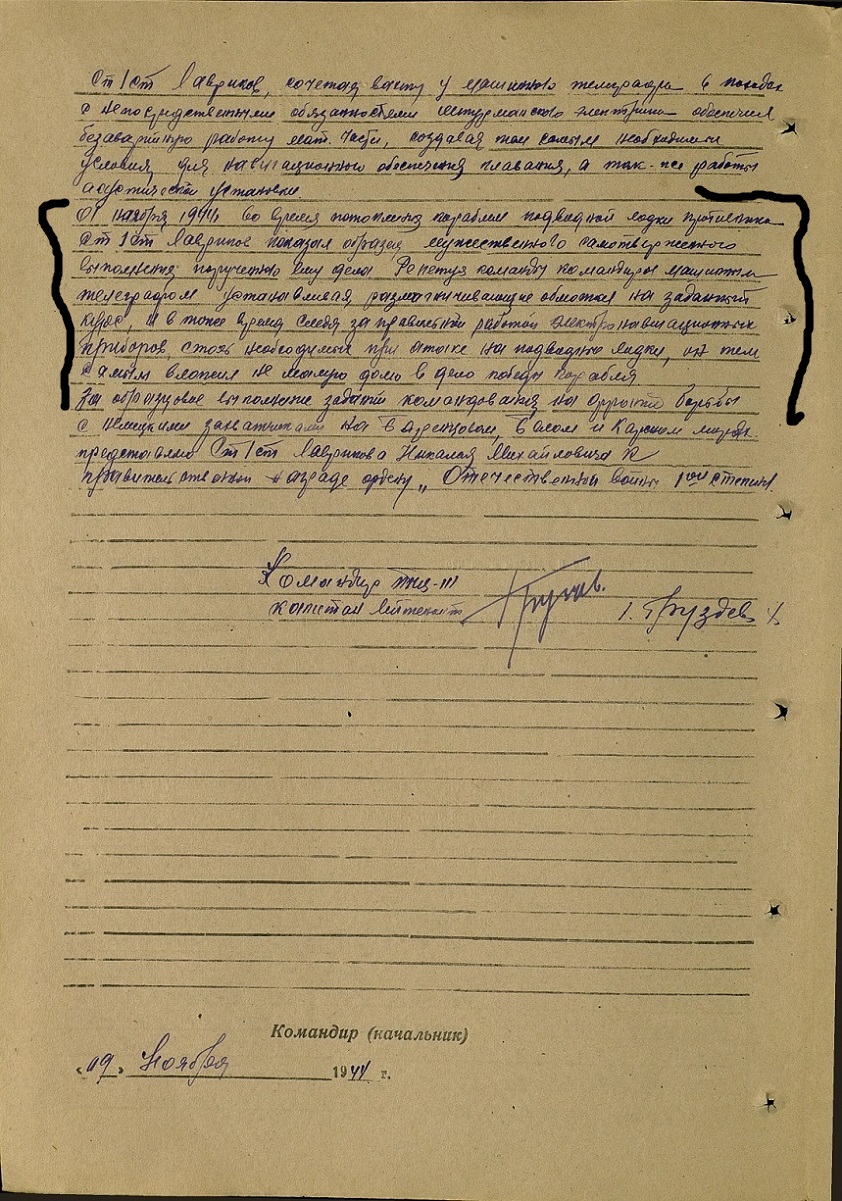 Ст 1 ст Лавриков, сочетая вахту у машинного телеграфа в походах
с непосредственными обязанностями штурманского электрика обеспечил
безаварийную работу мат. части, создавая тем самым необходимые
условия для навигационного обеспечения плавания, а так-же работы
акустической установки.
ноября 1944 во время потопления кораблем подводной лодки противника
Ст 1 ст Лавриков показал образец мужественного самотверженного
выполнения порученного ему дела Репетуя команды командира машинным
телеграфом устанавливая размагничивающие обмотки на заданный
курс, и в тоже время следя за правильной работой электронавигационных
приборов, столь необходимых при атаке на подводную лодку, он тем
самым вложил не малую долю в дело победы корабля.
За образцовое выполнение заданий командования на фронте борьбы
с немецкими захватчиками на Баренцовом, Белом и Карском морях
представляю Ст 1 ст Лаврикова Николая Михайловича к
правительственной награде ордену „Отечественной войны 1ой степени.
Командир тщ-111
капитан лейтенант
/. Груздев /.
Командир (начальник)
„19" Ноября 1944 г.